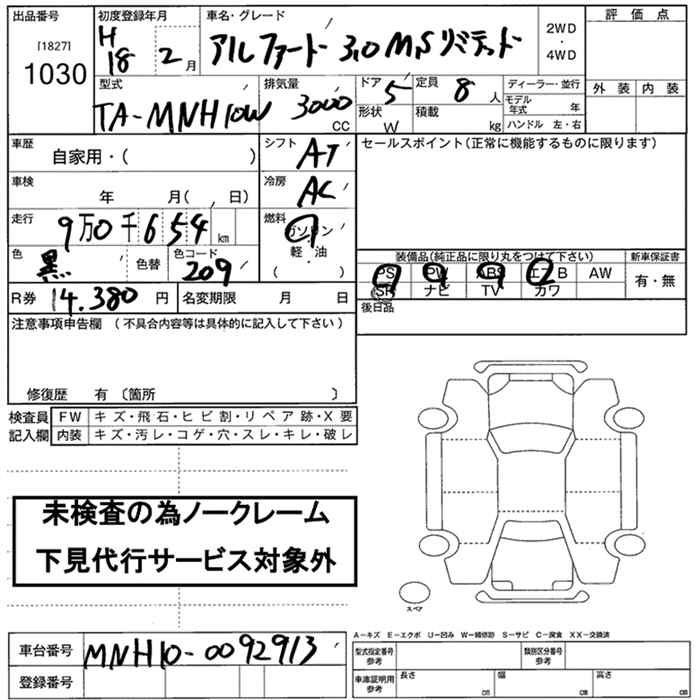 出品番号 初度登録年月 車名・グレード 評価点
[1827] 1030 H18 2月 アルファード 3.0 MS リミテッド 2WD・4WD
外装 内装
型式 排気量 ドア 定員 ディーラー・並行
TA-MNH10W 3000 CC 5 8人 モデル年式 年
形状 W 積載 kg ハンドル 左・右
車歴 シフト セールスポイント(正常に機能するものに限ります)
自家用・( ) AT
車検 年 月( , 日) 冷房 AC
走行 9万0千654km 燃料 ガソリン 軽・油 ( )
色 黒 色替 色コード 209
装備品(純正品に限り丸をつけて下さい) 新車保証書
PS PW ABS エアB AW 有・無
SR ナビ TV カワ
R券 14.380円 名変期限 月 日 後日品
注意事項申告欄 (不具合内容等は具体的に記入して下さい)
修復歴 有 〔箇所 〕
検査員 FW キズ・飛石・ヒビ割・リペア跡・X要
記入欄 内装 キズ・汚レ・コゲ・穴・スレ・キレ・破レ
未検査の為ノークレーム
下見代行サービス対象外
スペア
A−キズ E−エクボ U−凹み W−補修跡 S−サビ C−腐食 XX−交換済
車台番号 MNH10-0092913 型式指定番号 参考 類別区分番号 参考
登録番号 車庫証明用 参考 長さ cm 幅 cm 高さ cm